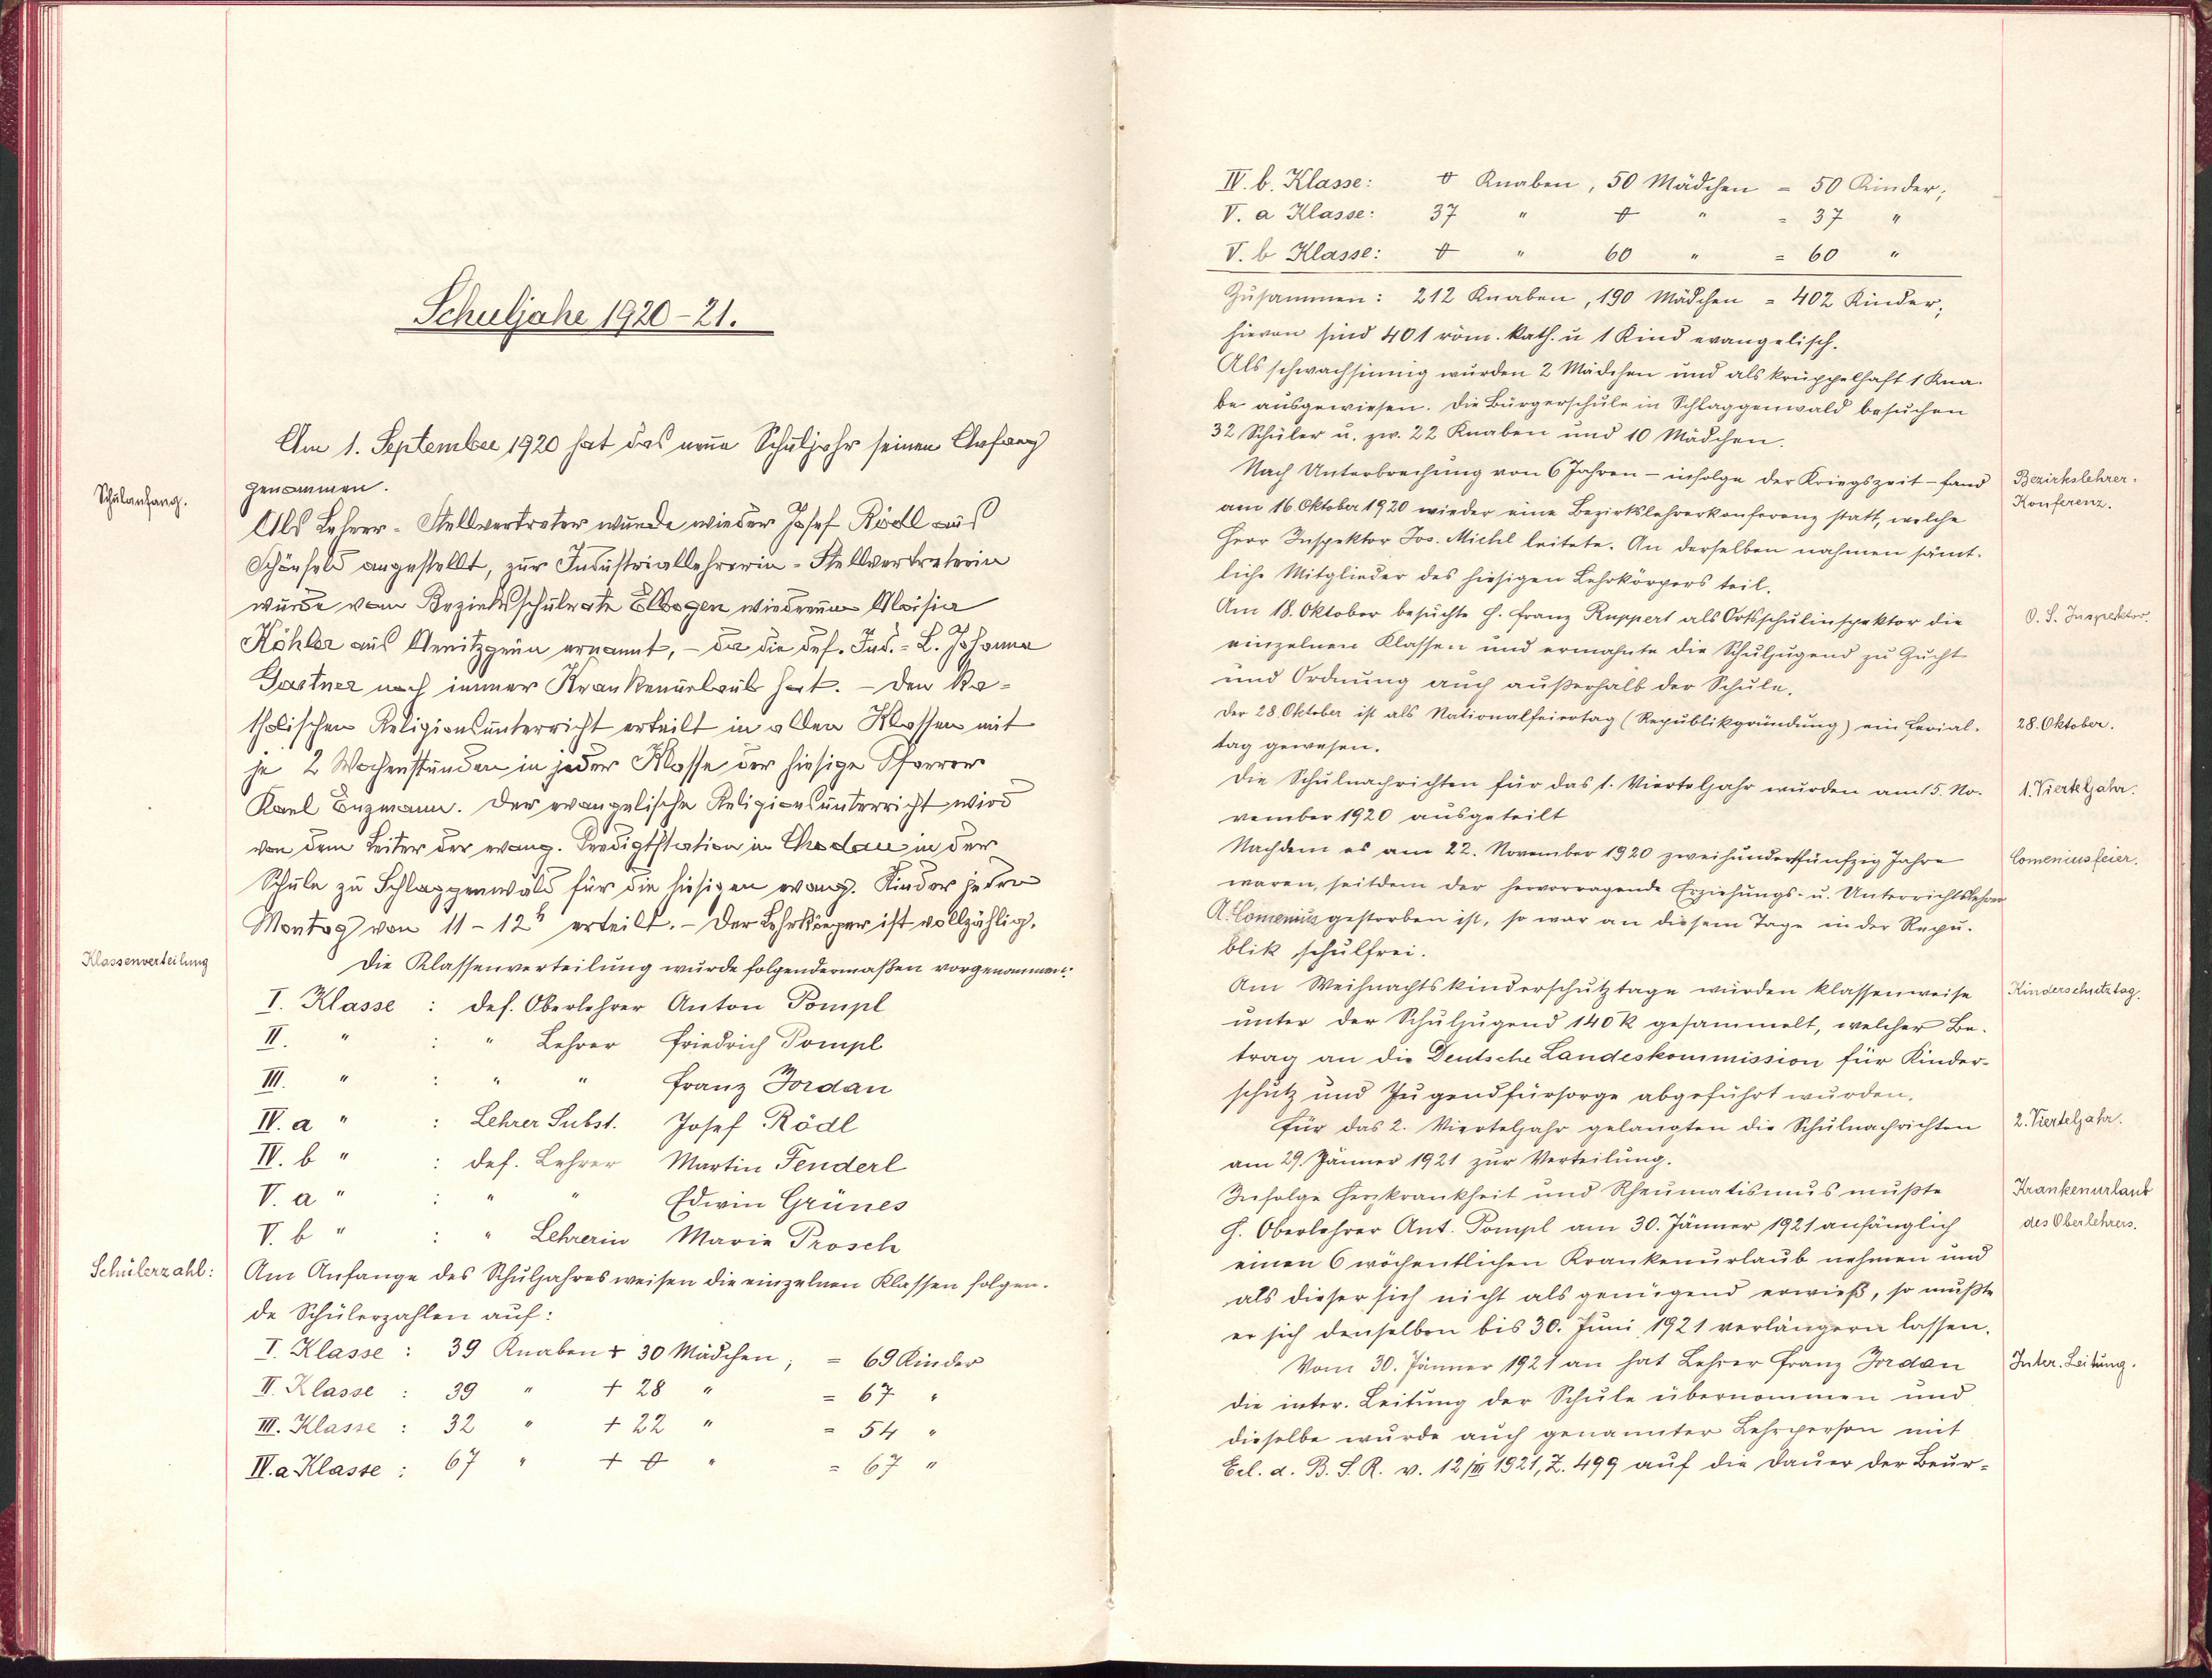 Schuljahr 1920-21.
Schulanfang.
Am 1. September 1920 hat das neue Schuljahr seinen Anfang
genommen.
Als Lehrer-Stellvertreter wurde wieder Josef Rödl aus
Schönfeld angestellt, zur Industriallehrerin-Stellvertreterin
wurde vom Bezirksschulrate Elbogen wiederum Aloisia
Köhler aus ernannt, – da die def. Ind.-L. Johanna
Gastner noch immer Krankenurlaub hat. – Den ka-
tholischen Religionsunterricht erteilt in allen Klassen mit
je 2 Wochenstunden in jeder Klasse der hiesige Pfarrer
Karl Enzmann. Der evangelische Religionsunterricht wird
von dem Leiter der evang. Predigtstation in Chodau in der
Schule zu Schlaggenwald für die hiesigen evang. Kinder jeden
Montag von 11-12h erteilt. – Der Lehrkörper ist vollzählig.
Klassenverteilung
Die Klassenverteilung wurde folgendermaßen vorgenommen:
I. Klasse : def. Oberlehrer Anton Pompl
II. " : " Lehrer Friedrich Pompl
III. " : " " Franz Jordan
IV. a " : Lehrer Subst. Josef Rödl
IV. b " : def. Lehrer Martin Fenderl
V. a " : " " Edwin Grünes
V. b " : " Lehrerin Marie Prosch
Schülerzahl:
Am Anfange des Schuljahres weisen die einzelnen Klassen folgen-
de Schülerzahlen auf:
I. Klasse : 39 Knaben + 30 Mädchen, = 69 Kinder
II. Klasse : 39 " + 28 " = 67 "
III. Klasse : 32 " + 22 " = 54 "
IV. a Klasse : 67 " + 0 " = 67 "
IV. b. Klasse: 0 Knaben, 50 Mädchen = 50 Kinder;
V. a Klasse: 37 " 0 " = 37 "
V. b Klasse: 0 " 60 " = 60 "
Zusammen: 212 Knaben, 190 Mädchen = 402 Kinder,
hievon sind 401 röm. kath. u 1 Kind evangelisch.
Als schwachsinnig wurden 2 Mädchen und als krüppelhaft 1 Kna-
be ausgewiesen. Die Bürgerschule in Schlaggenwald besuchen
32 Schüler u. zw. 22 Knaben und 10 Mädchen.
Nach Unterbrechung von 6 Jahren – infolge der Kriegszeit – fand
am 16 Oktober 1920 wieder eine Bezirkslehrerkonferenz statt, welche
Herr Inspektor Jos. Michl leitete. An derselben nahmen sämt-
liche Mitglieder des hiesigen Lehrkörpers teil.
Bezirkslehrer-
Konferenz.
Am 18. Oktober besuchte H. Franz Ruppert als Ortsschulinspektor die
einzelnen Klassen und ermahnte die Schuljugend zu Zucht
und Ordnung auch außerhalb der Schule.
O. S. Inspektor.
Der 28. Oktober ist als Nationalfeiertag (Republikgründung) ein Ferial-
tag gewesen.
28. Oktober.
Die Schulnachrichten für das 1. Vierteljahr wurden am 15. No-
vember 1920 ausgeteilt
1. Vierteljahr.
Nachdem es am 22. November 1920 zweihundertfünfzig Jahre
waren, seitdem der hervorragende Erziehungs- u. Unterrichtslehrer
A. Comenius gestorben ist, so war an diesem Tage in der Repu-
blik schulfrei.
Comeniusfeier.
Am Weihnachtskinderschutztage wurden klassenweise
unter der Schuljugend 140 K gesammelt, welcher Be-
trag an die Deutsche Landeskommission für Kinder-
schutz und Jugendfürsorge abgeführt wurden.
Kinderschutztag.
Für das 2. Vierteljahr gelangten die Schulnachrichten
am 29. Jänner 1921 zur Verteilung.
2. Vierteljahr.
Infolge Herzkrankheit und Rheumatismus mußte
H. Oberlehrer Ant. Pompl am 30. Jänner 1921 anfänglich
einen 6 wöchentlichen Krankenurlaub nehmen und
als dieser sich nicht als genügend erwieß, so mußte
er sich denselben bis 30. Juni 1921 verlängern lassen.
Krankenurlaub
des Oberlehrers.
Vom 30. Jänner 1921 an hat Lehrer Franz Jordan
die inter. Leitung der Schule übernommen und
dieselbe wurde auch genannter Lehrperson mit
Erl. d. B. S. R. v. 12/III 1921, Z. 499 auf die Dauer der Beur-
Inter. Leitung.